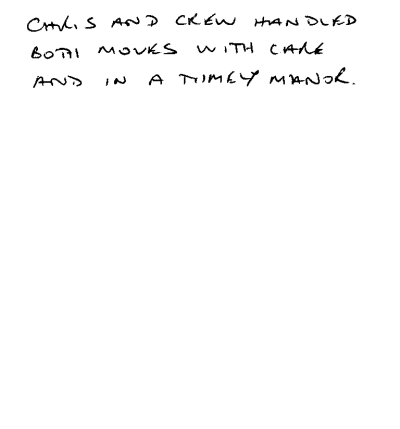 CHRIS AND CREW HANDLED
BOTH MOVES WITH CARE
AND IN A TIMELY MANOR.